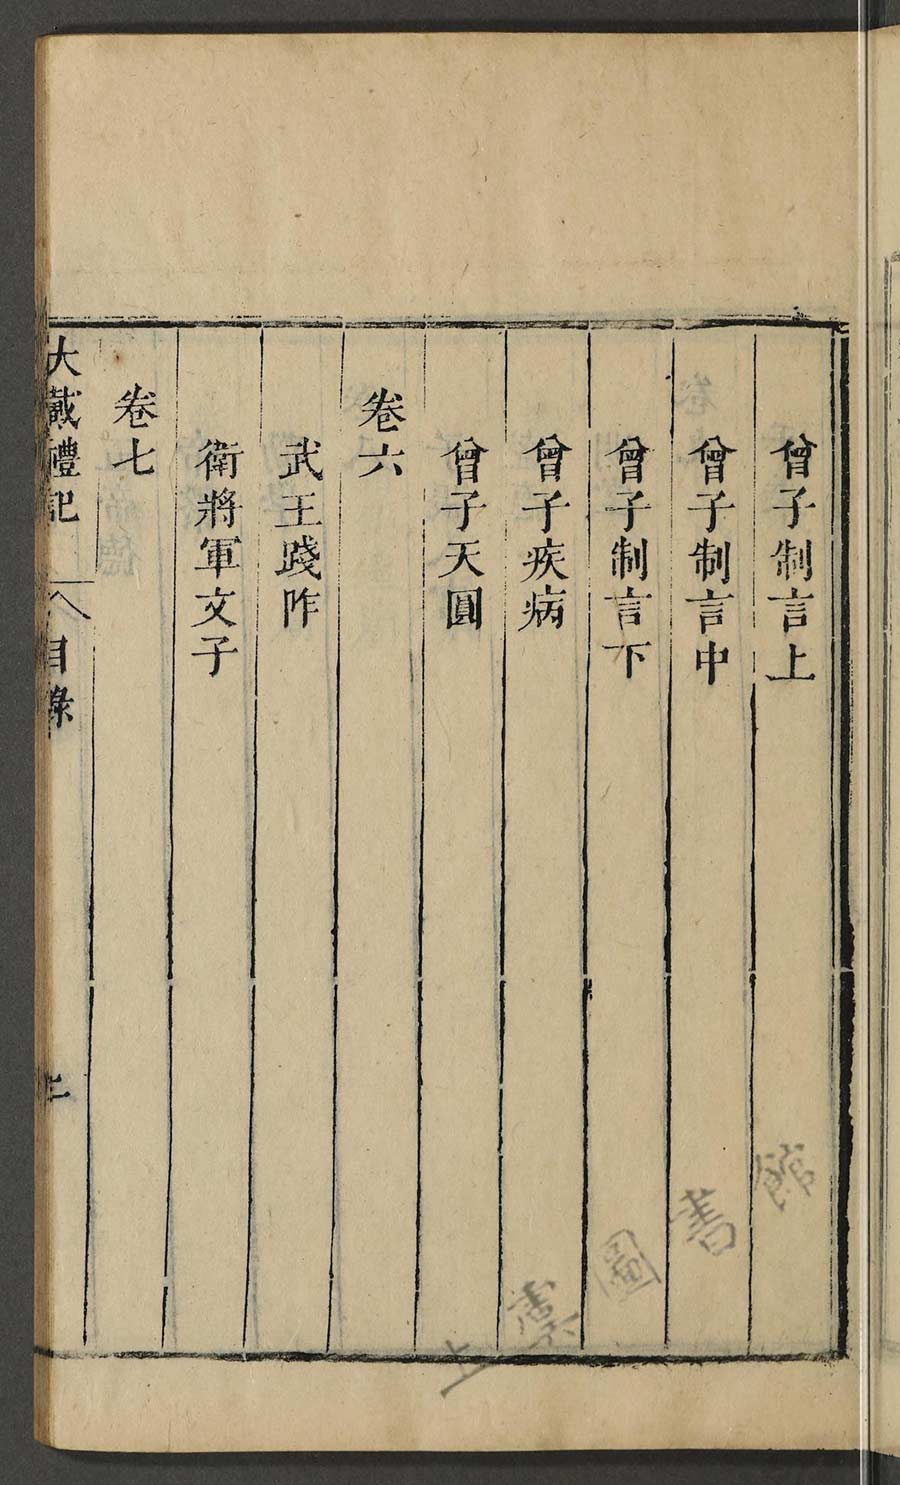 曾子制言上
曾子制言中
曾子制言下
曾子疾病
曾子天圓
卷六
武王踐阼
衛將軍文子
卷七
大戴禮記
目錄
圖書館